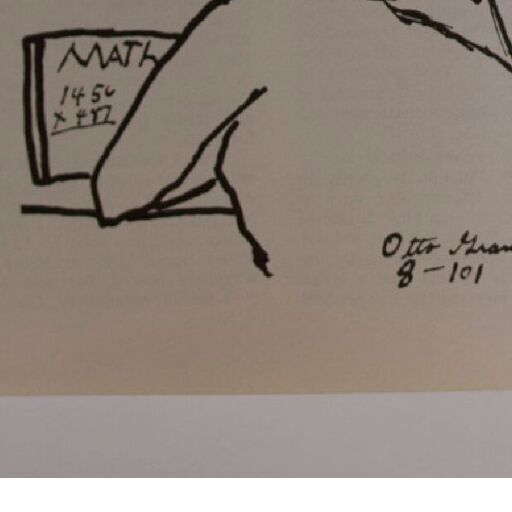 MATH
1456
x 487
Otto Gran
8-101